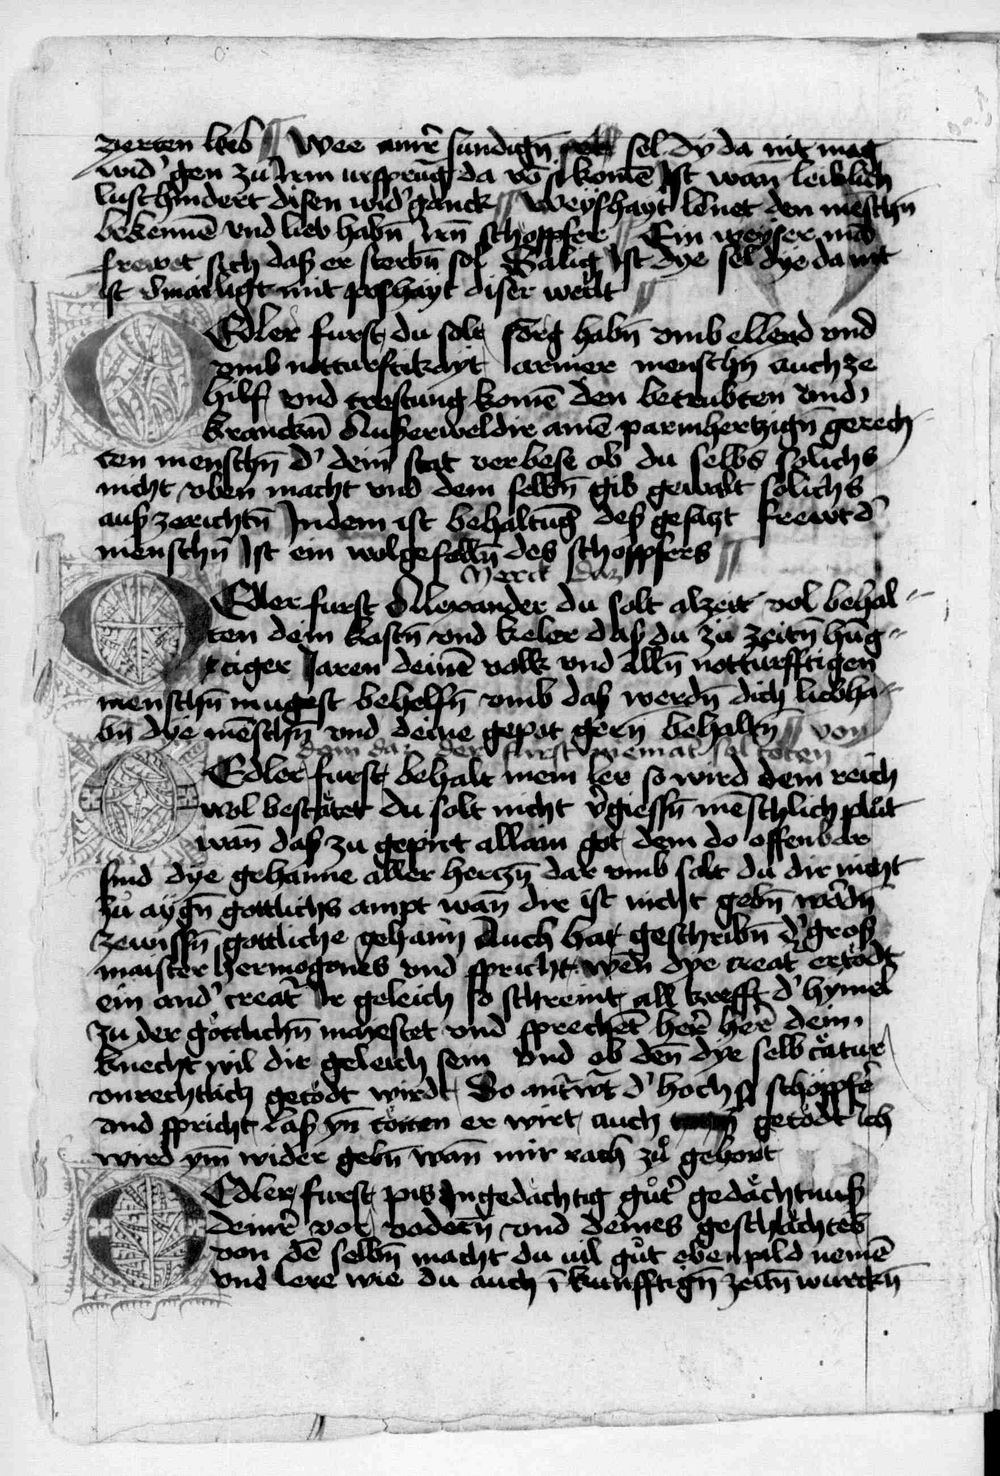 zierten leib Wee ainer sundign̄ sel dy da nit mag
wid' gen zu Irm ursprūg da vō si komē Ist wan̄ leiblich
lust hindert disen wid'ganck Weyshayt lernet den mēschn̄
bekennē vnd lieb habn̄ Irn̄ schopffer Ein weyser mā
frewet sich daß er sterbn̄ sol Sälig Ist dye sel dye da nit
ist vmailigt mit poshayt diser werlt
O Edler furst du solt sorg habn̄ vmb ellend vnd
vmb notturfftikayt armer menschn̄ auch ze
hilff vnd trostung komē den betrubten vnd
kranckn̄ Außerwel dir ainē parmhertzign̄ gerech
ten menschn̄ d' dein stat verbese ob du selbs solichs
nicht vben macht vnd dem selbn̄ gib gewalt solichs
auß zerichtn̄ Indem ist behaltūg deß gesäzt frewt d'
menschn̄ Ist ein wolgefalln̄ des schoppfers
Merck daz
O Edler furst Alexander du solt alzeit vol behal
ten dein kastn̄ vnd keler daß du zu zeitn̄ hūg
riger Jaren deinē volk vnd alln̄ notturfftigen
menschn̄ mugest behelfn̄ vmb daß werdn̄ dich liebha
bn̄ dye mēschn̄ vnd deine gepot gern̄ behaltn̄ von
dem daz der furst niemat sol toten
O Edler furst behalt mein ler so wird dein reich
wol bestätet du solt nicht v'giessn̄ mēschlich plūt
wan̄ daß zu gepürt allain got dem do offenbar
sind dye gehaime aller hertzn̄ dar vmb solt du dir nicht
zu aygn̄ gottlichs ampt wan̄ dir ist nicht gebn̄ wordn̄
zewissn̄ gottliche gehaim̄ Auch hat geschribn̄ d' groß
maister hermogones vnd spricht wen̄ dye creat' ertödt
ein and' creat' Ir geleich so schreint all krefft d' hymel
zu der göttlichn̄ mayestet vnd sprechēt her̄ her̄ dein
knecht wil dir geleich sein vnd ob den̄ dye selb c'atur
vnrechtlich getödt wirdt So antwt' d' hochst schöppfer
and spricht laß yn̄ töten er wirt auch getödt Ich
wird ym̄ wider gebn̄ wan̄ mir rach zů gehort
O Edler furst pis Ingedächtig gůt' gedächtnuß
deinr̄ vor vodern̄ vnd deines geschlächtes
von dē selbn̄ macht du vil gůt ebenpild nemē
vnd lere wie du auch ī kunfftign̄ zeitn̄ wurckn̄